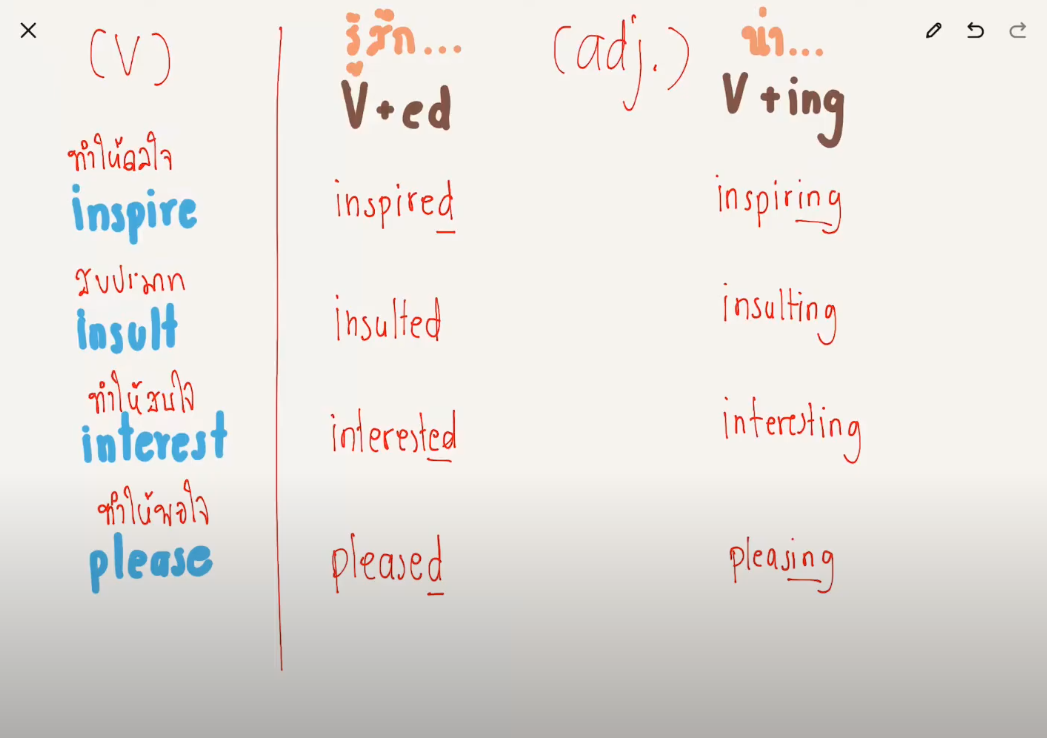 (V)
รู้สึก...
(adj.)
น่า...
V+ed
V+ing
ทำให้ดลใจ
inspire
inspired
inspiring
สบประมาท
insult
insulted
insulting
ทำให้สนใจ
interest
interested
interesting
ทำให้พอใจ
please
pleased
pleasing